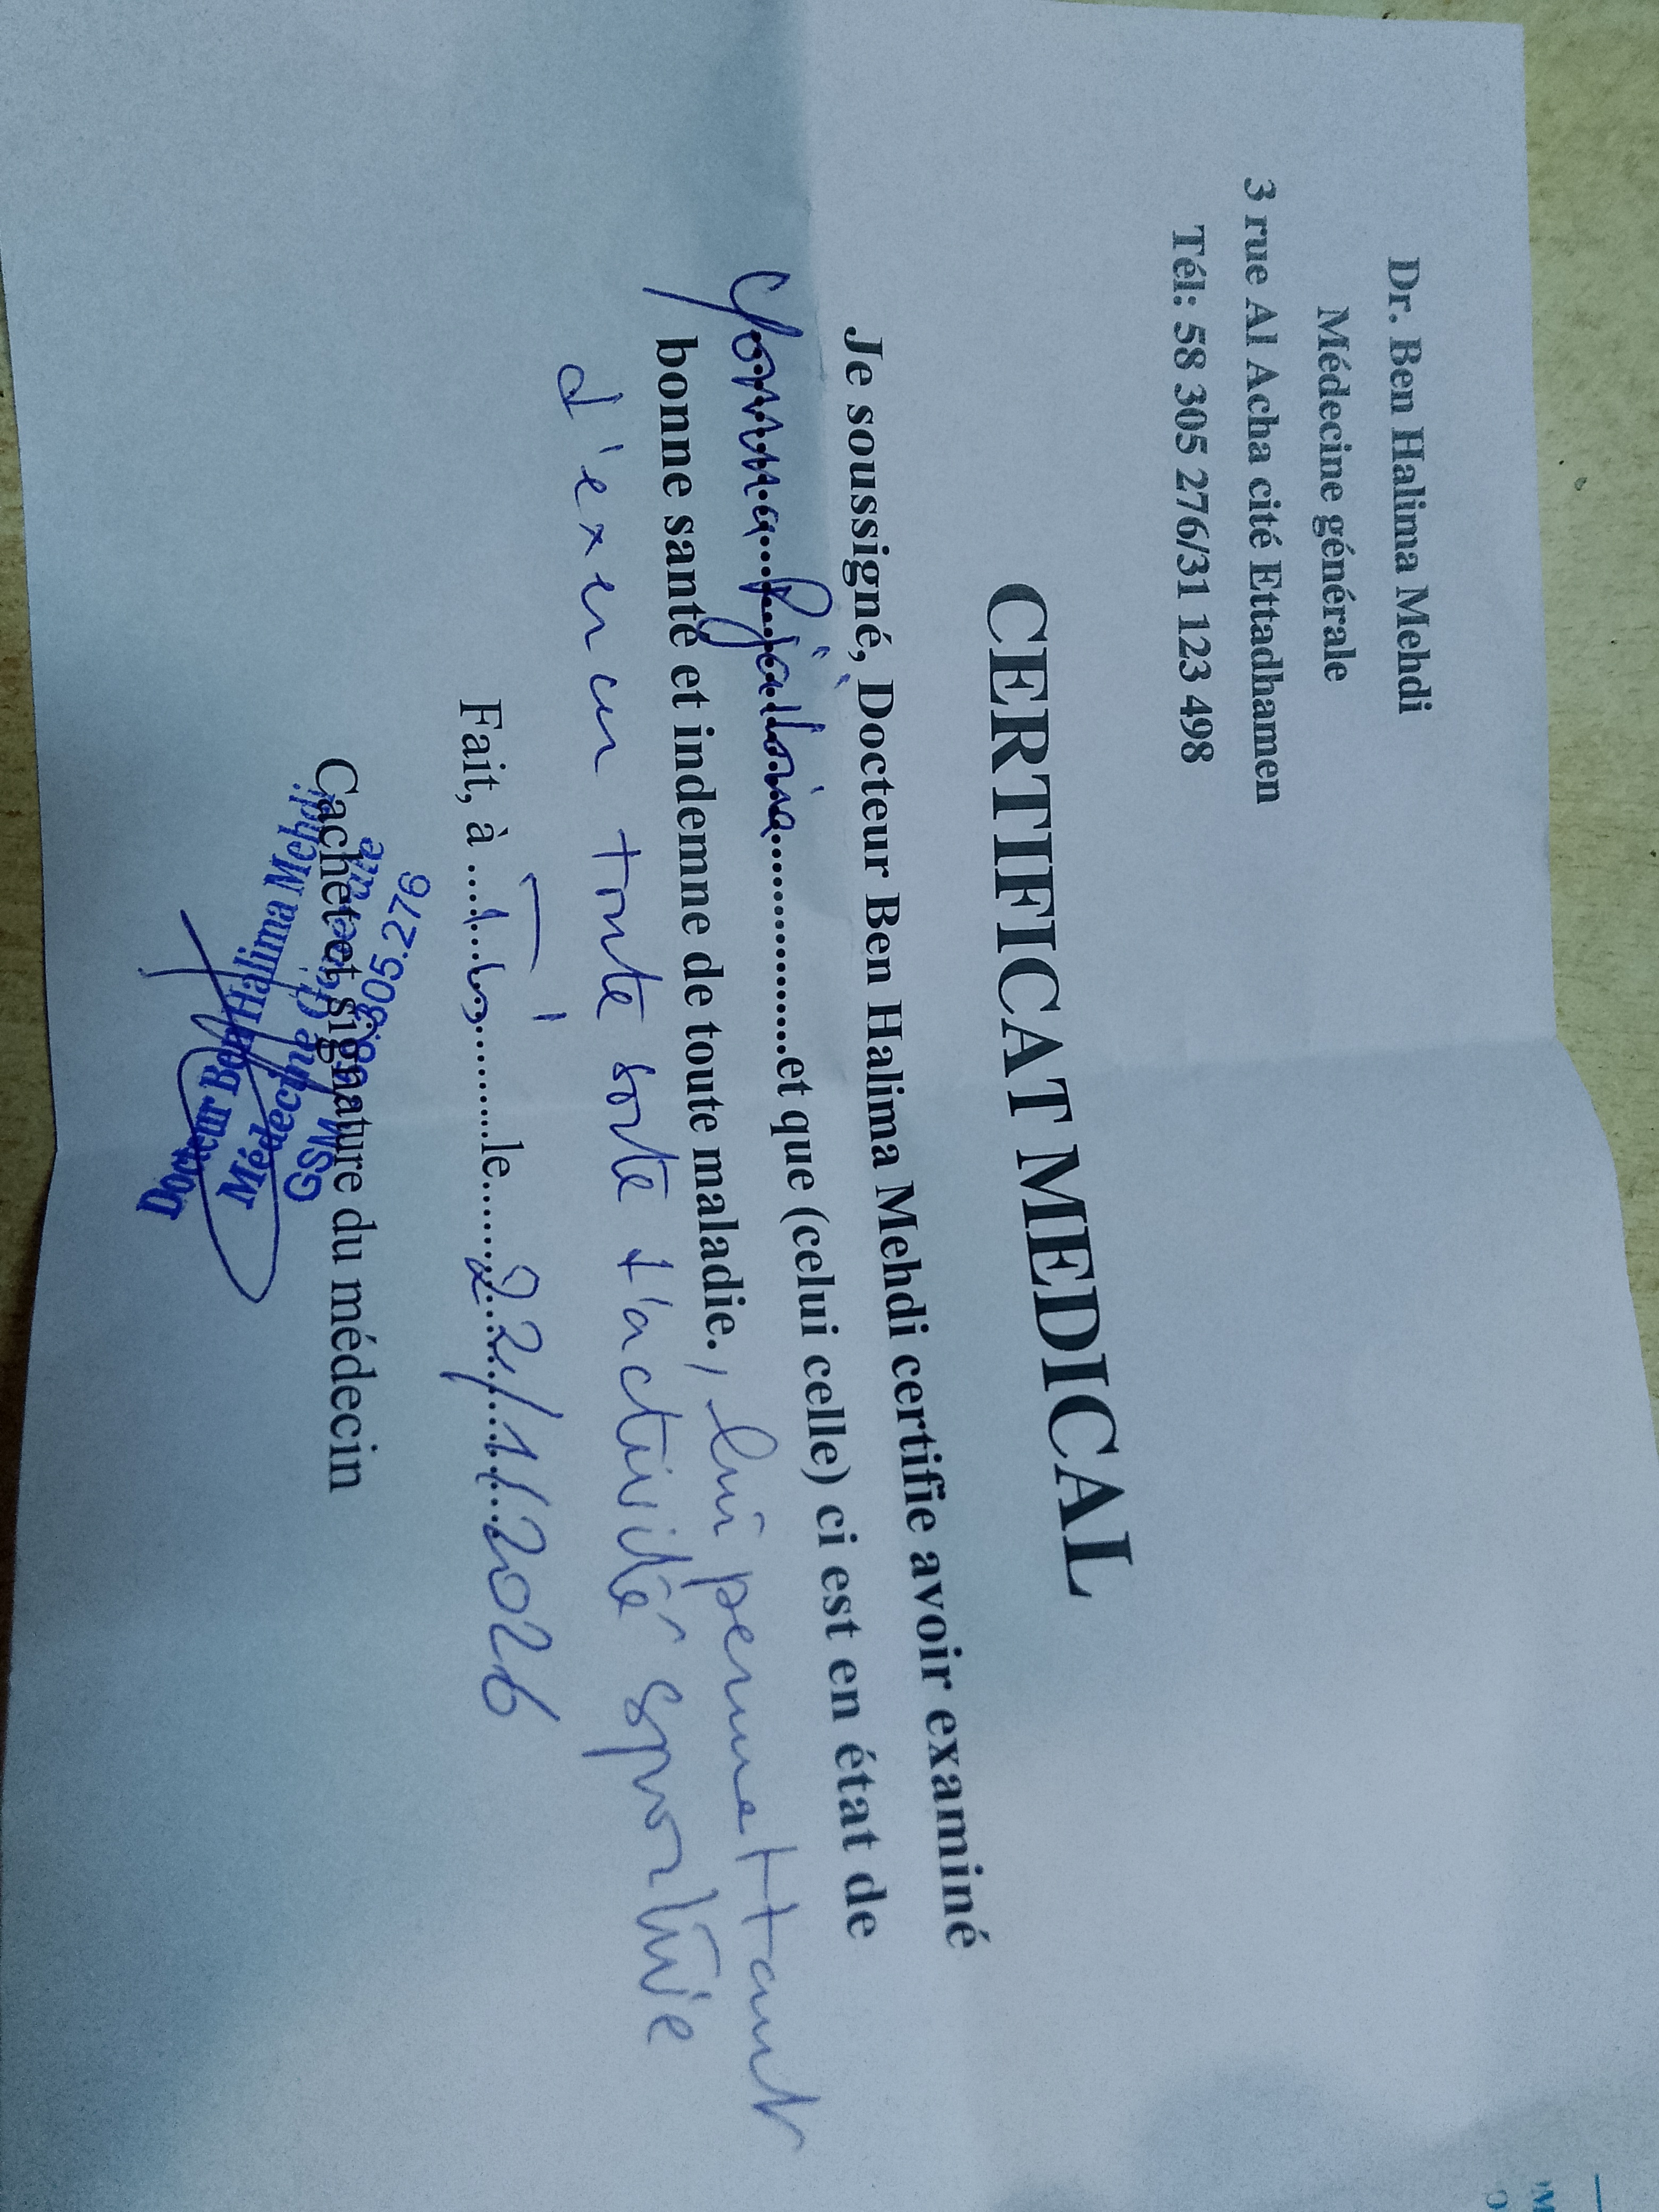 Dr. Ben Halima Mehdi
Médecine générale
3 rue Al Acha cité Ettadhamen
Tél: 58 305 276/31 123 498
CERTIFICAT MEDICAL
Je soussigné, Docteur Ben Halima Mehdi certifie avoir examiné
..........et que (celui celle) ci est en état de
bonne santé et indemne de toute maladie. , lui permettant
d'exercer toute sorte d'activité sportive
Fait, à ..........le..........22/1/2026
Cachet et signature du médecin
Docteur Ben Halima Mehdi
Médecine
GSM 58.305.276